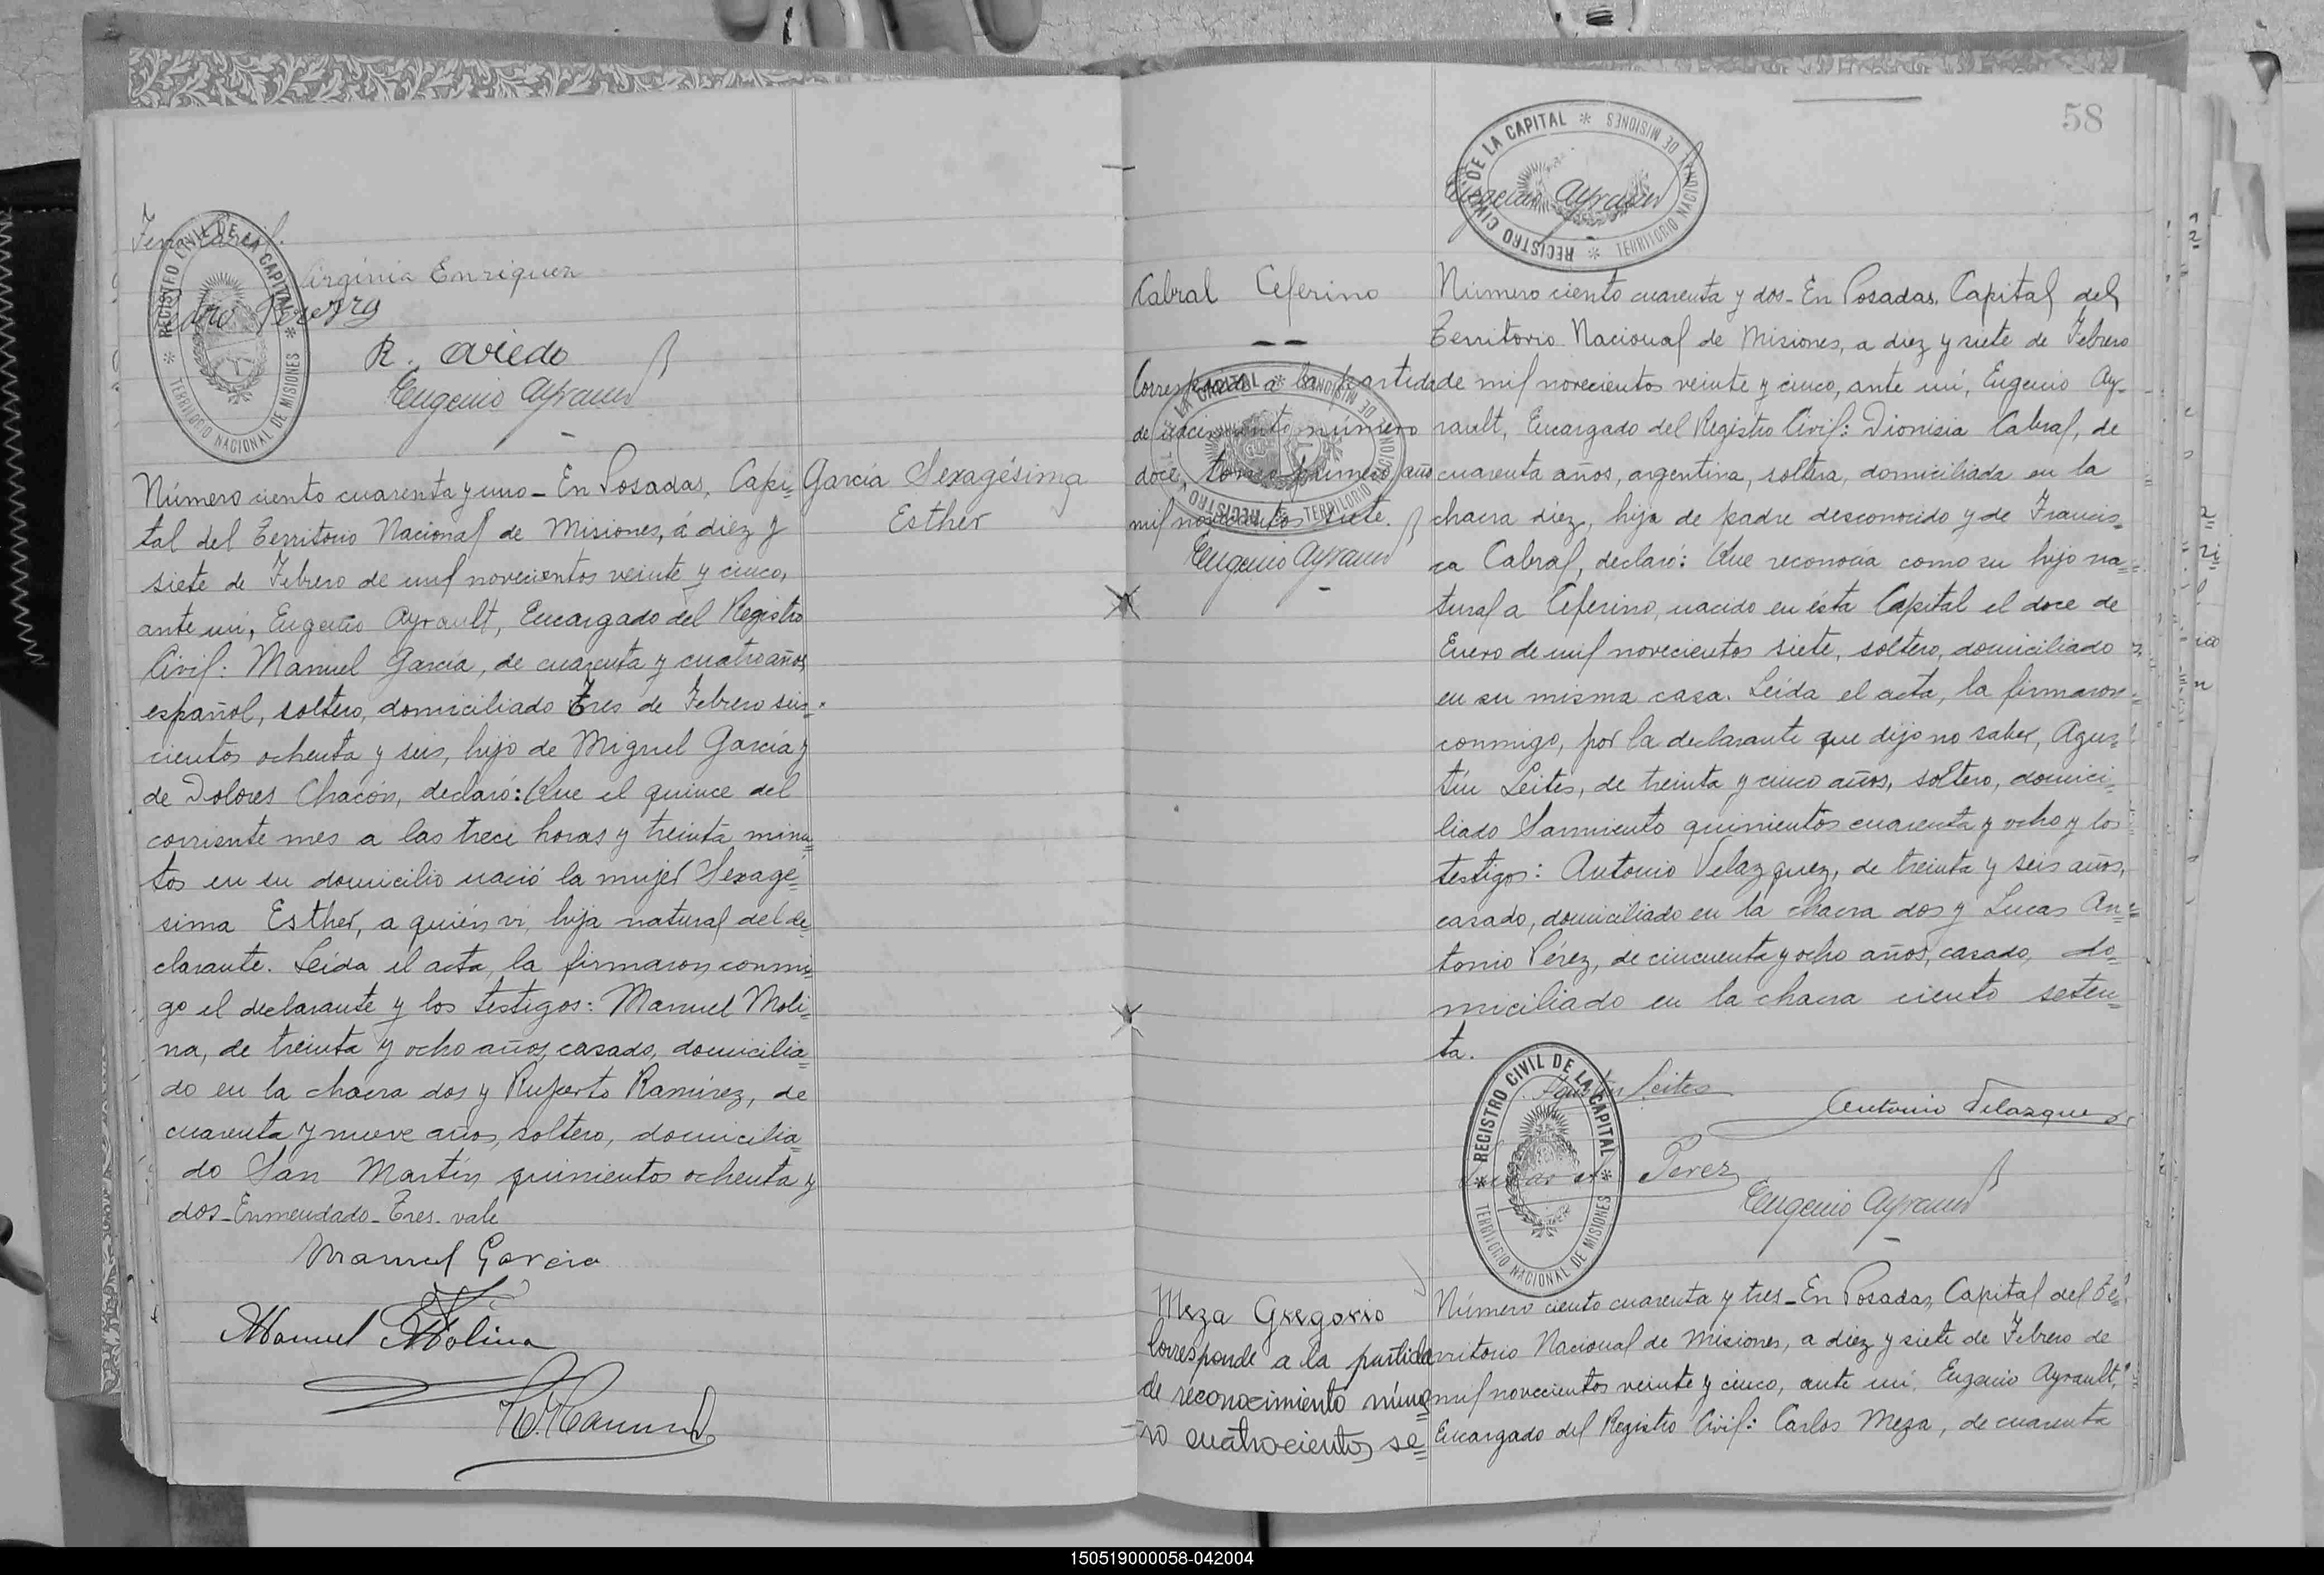 Virginia Enriquez
R. Oviedo
Eugenio Ayrault
REGISTRO CIVIL DE LA CAPITAL * TERRITORIO NACIONAL DE MISIONES *
Número ciento cuarenta y uno_ En Posadas, Capi=
tal del Territorio Nacional de Misiones, á diez y
siete de Febrero de mil novecientos veinte y cinco,
ante mi, Eugenio Ayrault, Encargado del Registro
Civil: Manuel García, de cuarenta y cuatro años,
español, soltero, domiciliado Tres de Febrero seis=
cientos ochenta y seis, hijo de Miguel García y
de Dolores Chacón, declaró: Que el quince del
corriente mes a las trece horas y treinta minu=
tos en su domicilio nació la mujer Sexagé=
sima Esther, a quién vi, hija natural del de=
clarante. Leída el acta, la firmaron conmi=
go el declarante y los testigos: Manuel Moli=
na, de treinta y ocho años, casado, domicilia=
do en la chacra dos y Ruperto Ramírez, de
cuarenta y nueve años, soltero, domicilia=
do San Martín quinientos ochenta y
dos_Enmendado_Tres. vale
Manuel Garcia
Manuel Molina
García Sexagésima
Esther
58
REGISTRO CIVIL DE LA CAPITAL * TERRITORIO NACIONAL DE MISIONES *
Eugenio Ayrault
Cabral Ceferino
Corresponde a la partida
de nacimiento número
doce, tomo primero, año
mil novecientos siete.
Eugenio Ayrault
REGISTRO CIVIL DE LA CAPITAL * TERRITORIO NACIONAL DE MISIONES *
Número ciento cuarenta y dos_ En Posadas, Capital del
Territorio Nacional de Misiones, a diez y siete de Febrero
de mil novecientos veinte y cinco, ante mi, Eugenio Ay=
rault, Encargado del Registro Civil: Dionisia Cabral, de
cuarenta años, argentina, soltera, domiciliada en la
chacra diez, hija de padre desconocido y de Francis=
ca Cabral, declaró: Que reconocía como su hijo na=
tural a Ceferino, nacido en ésta Capital el doce de
Enero de mil novecientos siete, soltero, domiciliado
en su misma casa. Leída el acta, la firmaron
conmigo, por la declarante que dijo no saber, Agus=
tín Leites, de treinta y cinco años, soltero, domici=
liado Sarmiento quinientos cuarenta y ocho y los
testigos: Antonio Velazquez, de treinta y seis años,
casado, domiciliado en la chacra dos y Lucas An=
tonio Pérez, de cincuenta y ocho años, casado, do=
miciliado en la chacra ciento seten=
ta.
Agustín Leites
Antonio Velazquez
Perez
Eugenio Ayrault
REGISTRO CIVIL DE LA CAPITAL * TERRITORIO NACIONAL DE MISIONES *
Meza Gregorio
Corresponde a la partida
de reconocimiento núme=
ro cuatrocientos se=
Número ciento cuarenta y tres_En Posadas, Capital del Te=
rritorio Nacional de Misiones, a diez y siete de Febrero de
mil novecientos veinte y cinco, ante mi, Eugenio Ayrault,
Encargado del Registro Civil: Carlos Meza, de cuarenta
150519000058-042004